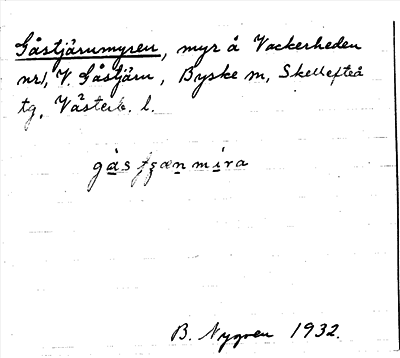 Gåstjärnmyren, myr å Vackerheden
nr 1, V. Gåstjärn, Byske sn, Skellefteå
tg, Västerb. l.
B. Nygren 1932.